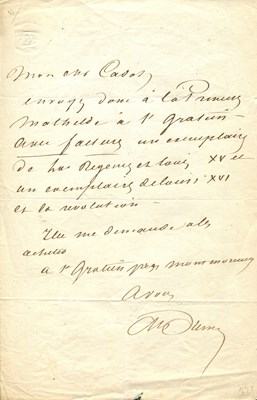 Mon cher Cadot,
envoyez donc à la Princesse
Mathilde à St Gratien
avec facture un exemplaire
de la Régence et Louis XV et
un exemplaire de Louis XVI
et la révolution
Elle me demande à les
acheter
à St Gratien près Montmorency
à vous
A Dumas